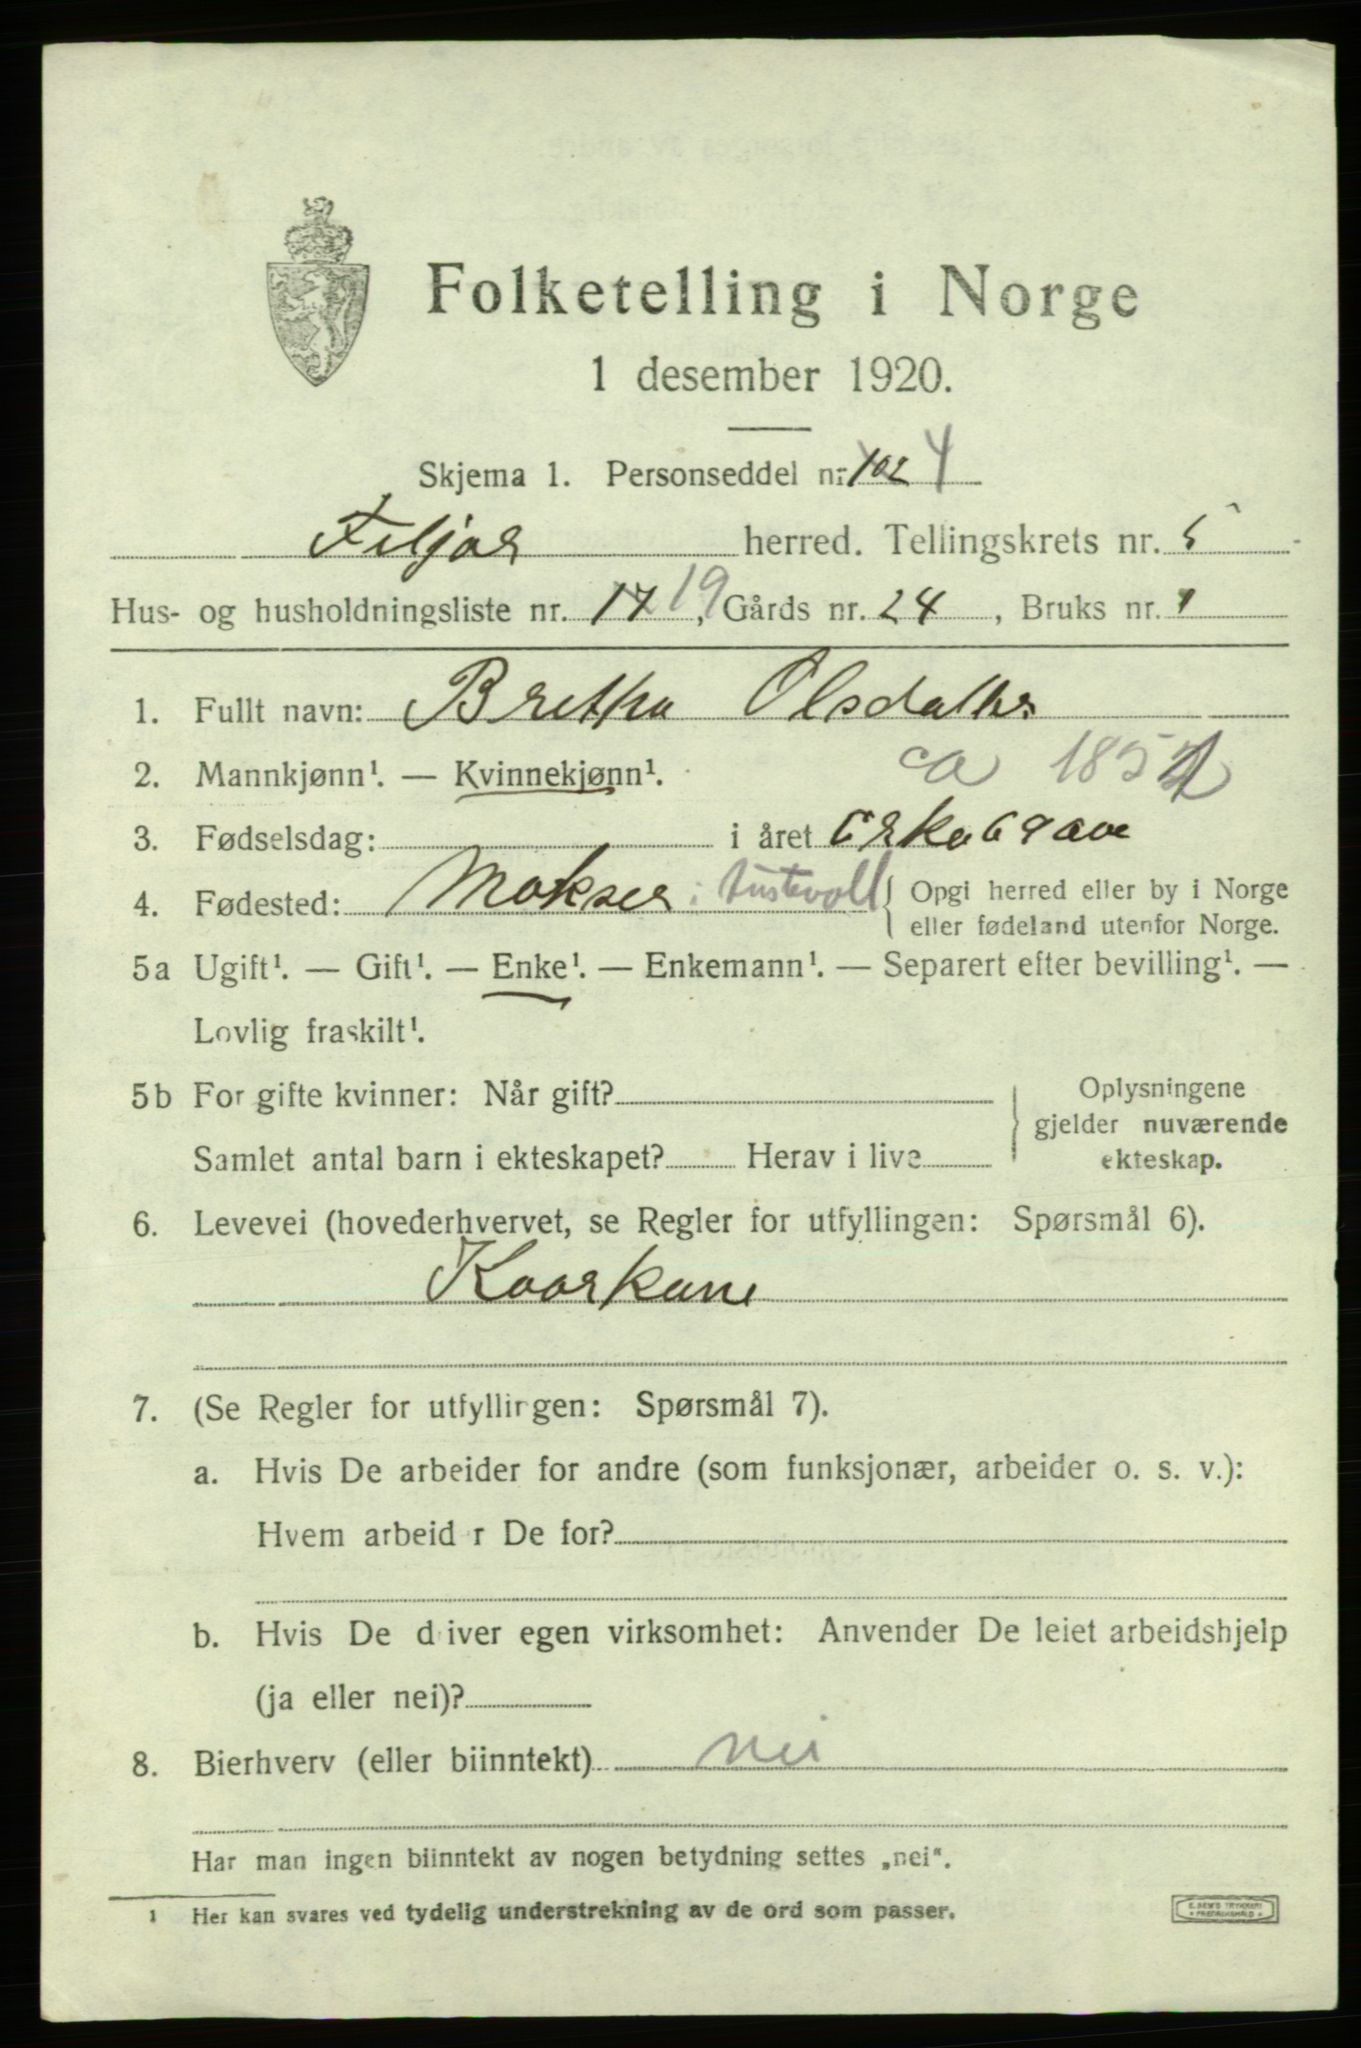 Folketelling i Norge
1 desember 1920.
Skjema 1. Personseddel nr. 102 4
Fitjar herred. Tellingskrets nr. 5
Hus- og husholdningsliste nr. 17 19, Gårds nr. 24, Bruks nr. 1
1. Fullt navn: Bretha Olsdatter
2. Mannkjønn¹. — Kvinnekjønn¹. ca 185
3. Fødselsdag: i året Cirka 69 aar
4. Fødested: Mokser i Austevoll { Opgi herred eller by i Norge
eller fødeland utenfor Norge.
5a Ugift¹. — Gift¹. — Enke¹. — Enkemann¹. — Separert efter bevilling¹. —
Lovlig fraskilt¹.
5b For gifte kvinner: Når gift? } Oplysningene
gjelder nuværende
Samlet antal barn i ekteskapet? Herav i live ekteskap.
6. Levevei (hovederhvervet, se Regler for utfyllingen: Spørsmål 6).
Kaarkone
7. (Se Regler for utfyllingen: Spørsmål 7).
a. Hvis De arbeider for andre (som funksjonær, arbeider o. s. v.):
Hvem arbeid r De for?
b. Hvis De d iver egen virksomhet: Anvender De leiet arbeidshjelp
(ja eller nei)?
8. Bierhverv (eller biinntekt) nei
Har man ingen biinntekt av nogen betydning settes „nei“.
1 Her kan svares ved tydelig understrekning av de ord som passer.